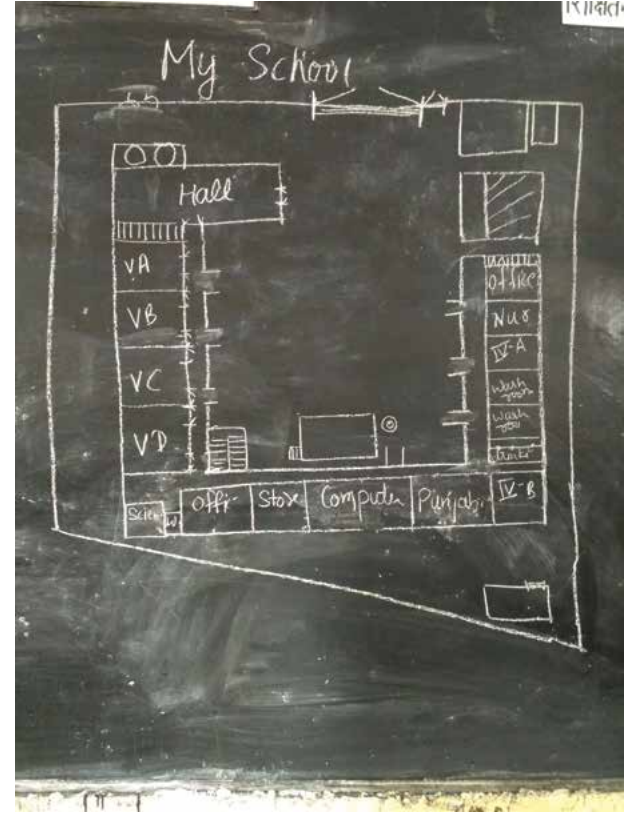 My School
Hall
VA
VB
VC
VD
Office
Nur
IV-A
Wash room
Wash roo
Scien
W
Offi-
Store
Computer
Punjabi
IV-B